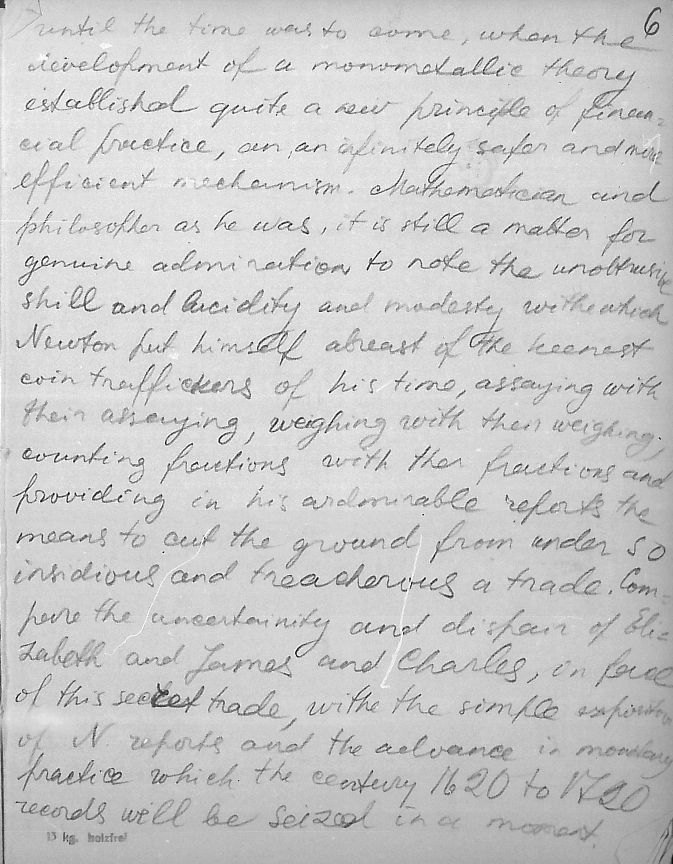 6
until the time was to come, when the
development of a monometallic theory
established quite a new principle of finan=
cial practice, an, an infinitely safer and more
efficient mechanism. Mathematician and
philosopher as he was, it is still a matter for
genuine admiration to note the unobtrusive
skill and lucidity and modesty withe which
Newton put himself abreast of the keenest
coin traffickers of his time, assaying with
their assaying, weighing with their weighing,
counting fractions with ther fractions and
providing in his ardmirable reports the
means to cut the ground from under so
insidious and treacherous a trade. Com=
pare the uncertainity and dispair of Eli=
zabeth and James and Charles, in face
of this secret trade, withe the simple exposition
of N. reports and the advance in monetary
practice which the century 1620 to 1720
records will be seized in a moment.
13 kg. holzfrei